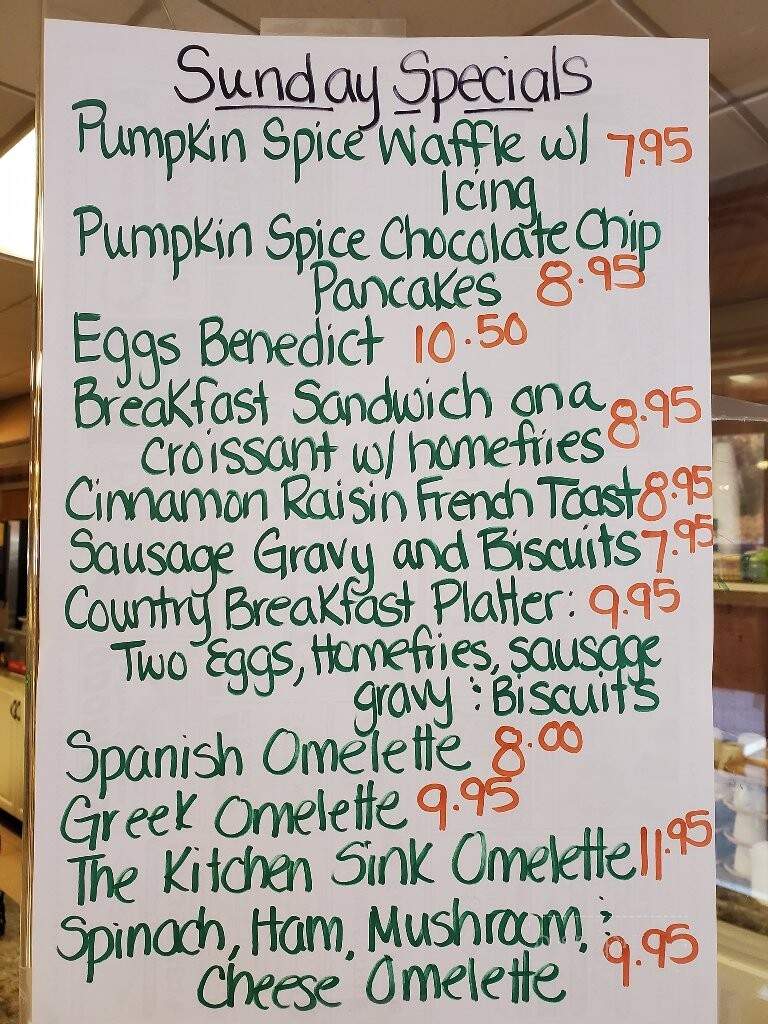 Sunday Specials
Pumpkin Spice Waffle w/ 7.95
Icing
Pumpkin Spice Chocolate Chip
Pancakes 8.95
Eggs Benedict 10.50
Breakfast Sandwich on a
croissant w/ homefries 8.95
Cinnamon Raisin French Toast 8.95
Sausage Gravy and Biscuits 7.95
Country Breakfast Platter: 9.95
Two Eggs, Homefries, sausage
gravy : Biscuits
Spanish Omelette 8.00
Greek Omelette 9.95
The Kitchen Sink Omelette 11.95
Spinach, Ham, Mushroom, :
Cheese Omelette 9.95